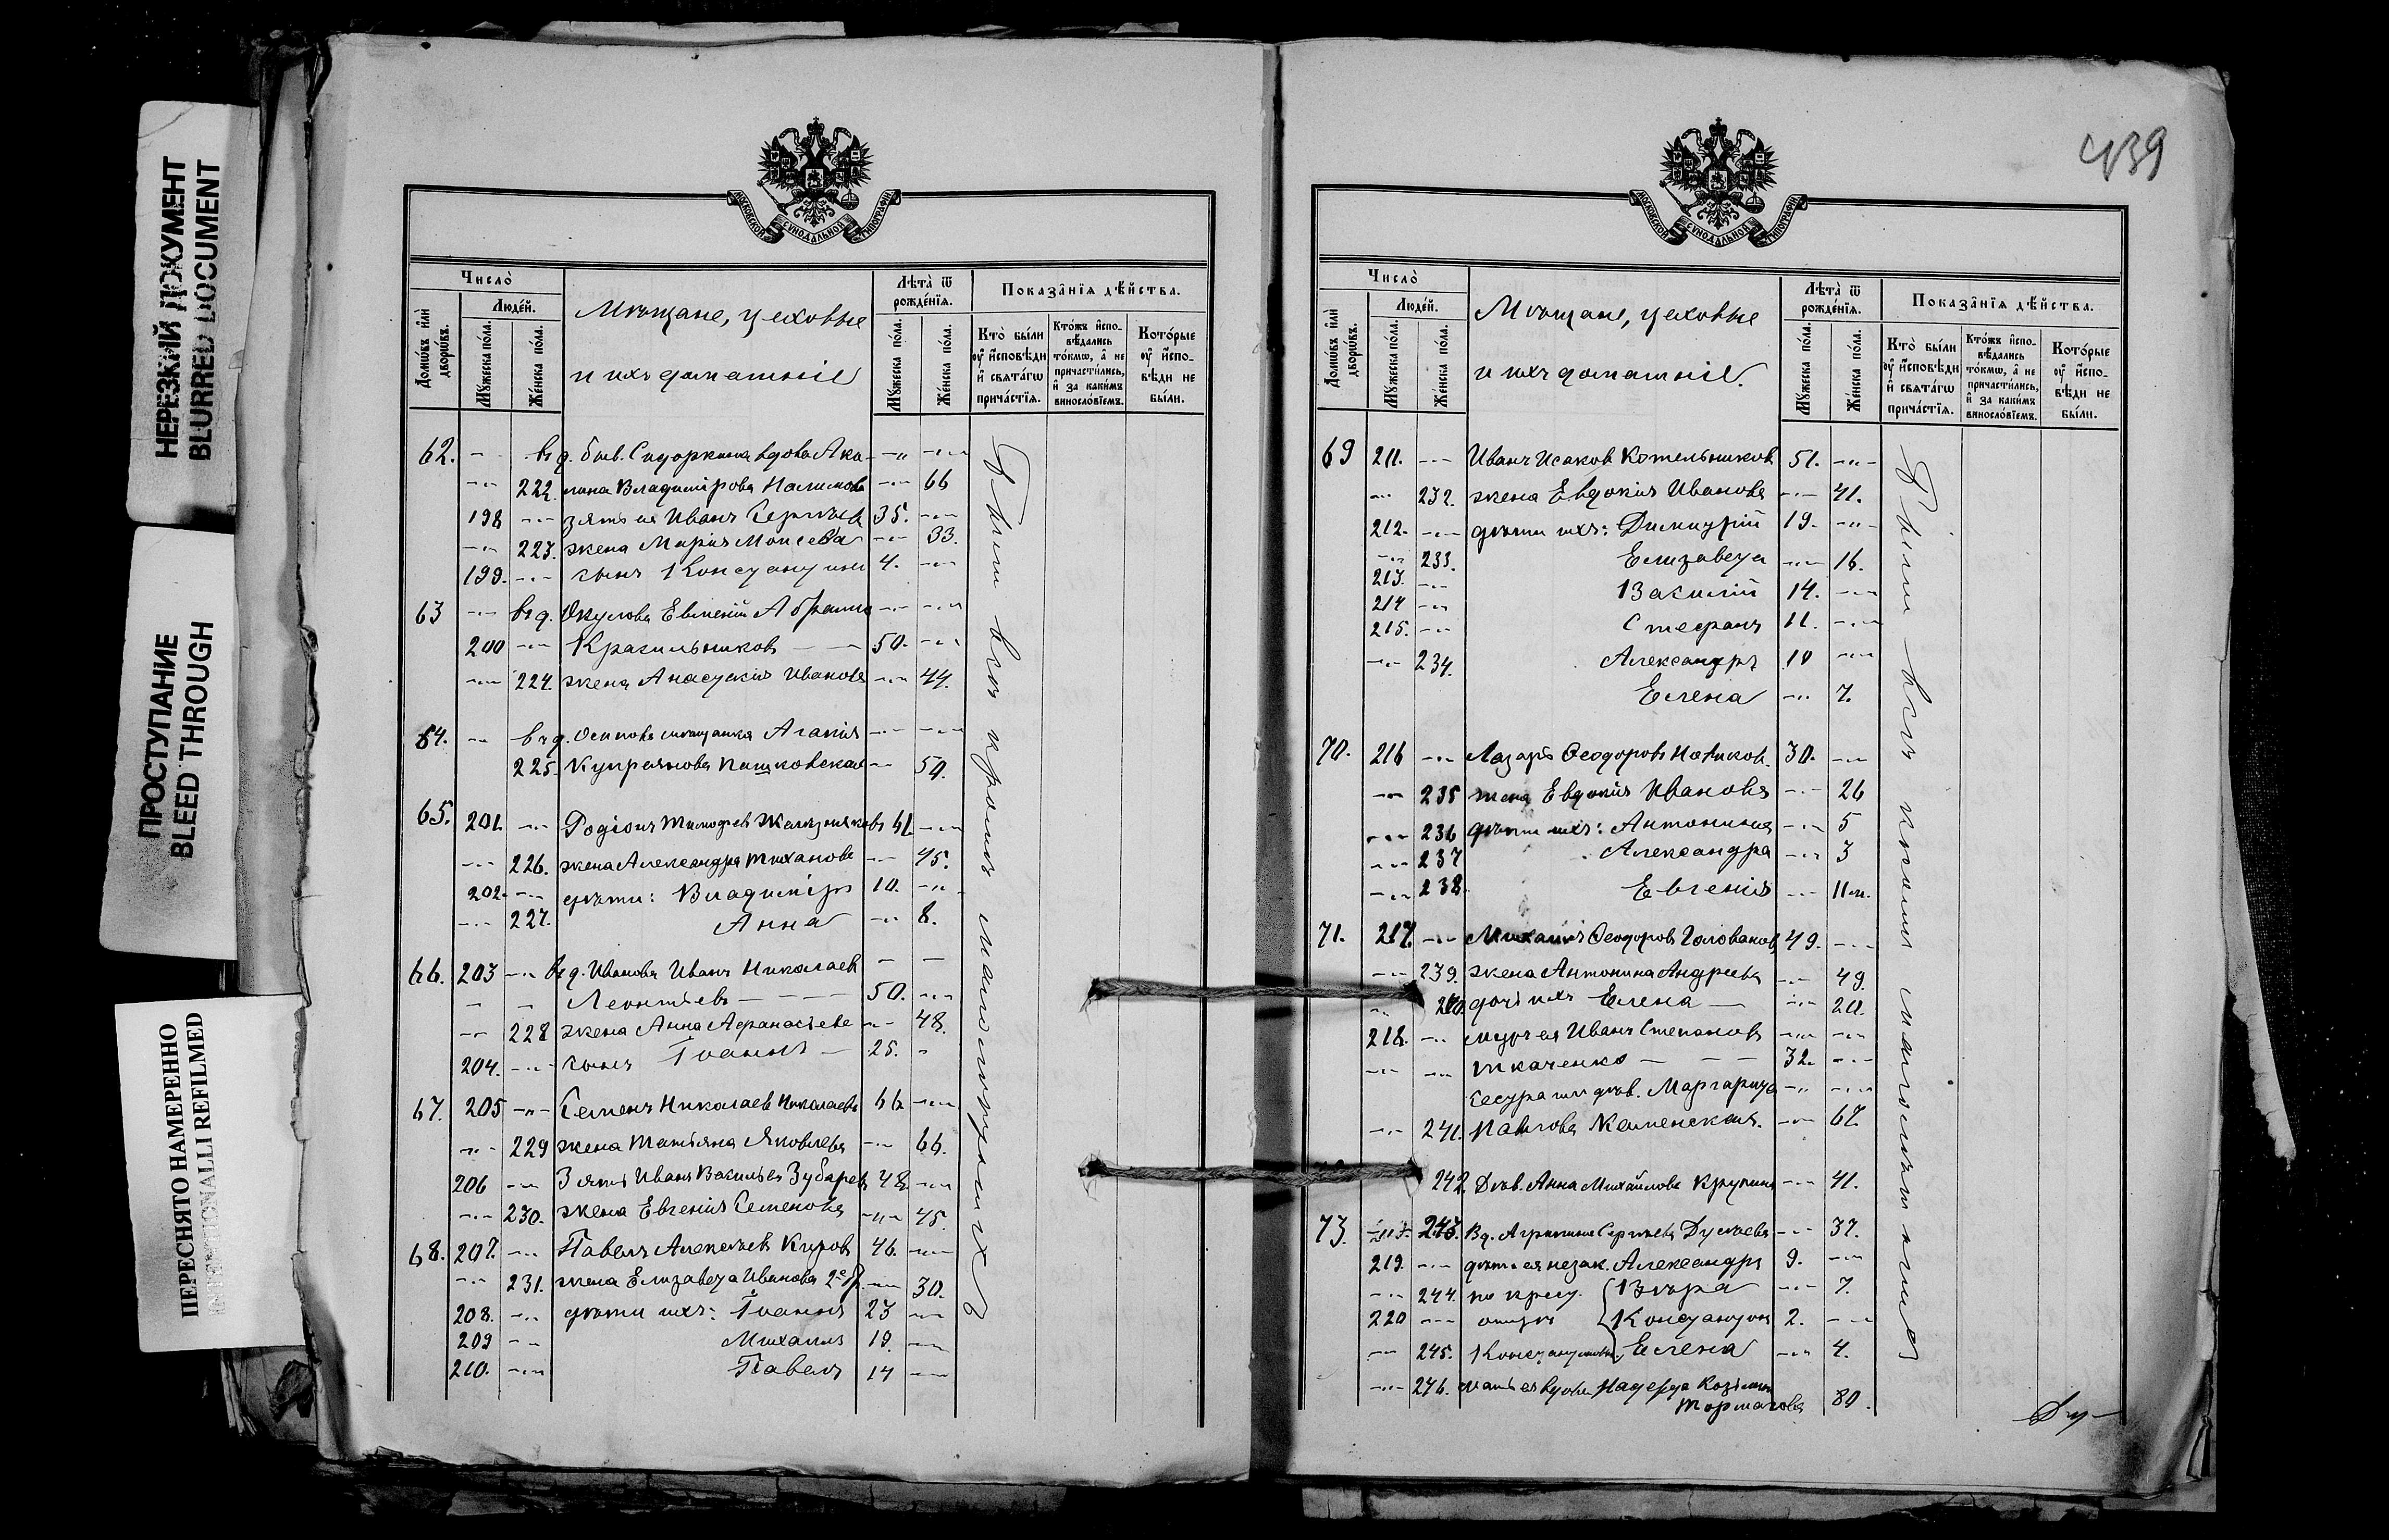 НЕРЕЗКИЙ ДОКУМЕНТ
BLURRED DOCUMENT
ПРОСТУПАНИЕ
BLEED THROUGH
ПЕРЕСНЯТО НАМЕРЕННО
INTENTIONALLI REFILMED
МОСКОВСКОЙ СѴНОДАЛЬНОЙ ТИПОГРАФІИ
Число̀
Домѡ́въ и҆лѝ дворѡ́въ.
Люде́й.
Мꙋ́жеска по́ла.
Же́нска по́ла.
Мѣщане, цеховые
и ихъ домашніе
Лѣта̀ ѿ рожде́нїѧ.
Мꙋ́жеска по́ла.
Же́нска по́ла.
Показа̑нїѧ дѣ́йства.
Кто̀ бы́ли ᲂу҆ и҆сповѣ́ди и҆ свѧта́гѡ прича́стїѧ.
Кто́жъ и҆спо-вѣ́дались то́кмѡ, а҆ не причасти́лись, и҆ за каки́мъ винословїемъ.
Кото́рые ᲂу҆ и҆спо-вѣ́ди не бы́ли.
62. въ д. быв. Сидоркина вдова Аку-
222. лина Владимірова Налимова 66
198 зять ея Иванъ Сергѣевъ 35.
223. жена Марія Моисеева 33.
199. сынъ Константинъ 4.
63 въ д. Окулова Евменій Абрамов
200 Красильниковъ 50.
224. жена Анастасія Иванова 44.
64. въ д. Осипова мѣщанка Агапія
225. Купріянова Пашковская 50.
65. 201. Родіонъ Тимофеев Желѣзняковъ 61
226. жена Александра Тиханова 45.
202. дѣти: Владиміръ 10.
227. Анна 8.
66. 203 въ д. Иванова Иванъ Николаев
Леонтьевъ 50.
228 жена Анна Афанасьева 48.
204. сынъ Іоаннъ 25.
67. 205 Семенъ Николаев Николаевъ 66
229 жена Татьяна Яковлева 66.
206 Зять Иванъ Васильев Зубаревъ 48
230. жена Евгенія Семенова 45.
68. 207. Павелъ Алексѣевъ Кировъ 46.
231. жена Елизавета Иванова 2го б. 30.
208. дѣти ихъ: Іоаннъ 23
209 Михаилъ 19.
210. Павелъ 14
Были всѣ кромѣ малолѣтнихъ
439
МОСКОВСКОЙ СѴНОДАЛЬНОЙ ТИПОГРАФІИ
Число̀
Домѡ́въ и҆лѝ дворѡ́въ.
Люде́й.
Мꙋ́жеска по́ла.
Же́нска по́ла.
Мѣщане, цеховые
и ихъ домашніе.
Лѣта̀ ѿ рожде́нїѧ.
Мꙋ́жеска по́ла.
Же́нска по́ла.
Показа̑нїѧ дѣ́йства.
Кто̀ бы́ли ᲂу҆ и҆сповѣ́ди и҆ свѧта́гѡ прича́стїѧ.
Кто́жъ и҆спо-вѣ́дались то́кмѡ, а҆ не причасти́лись, и҆ за каки́мъ винословїемъ.
Кото́рые ᲂу҆ и҆спо-вѣ́ди не бы́ли.
69 211. Иванъ Исаков Котельников 51.
232. жена Евдокія Иванова 41.
212. дѣти ихъ: Димитрій 19.
233. Елизавета 16.
213. Василій 14.
214 Стефанъ 11.
215. Александръ 10
234. Елена 7.
70. 216 Лазарь Ѳеодоровъ Новиков 30.
235 жена Евдокія Иванова 26
236 дѣти ихъ: Антонина 5
237 Александра 3
238. Евгенія 11 м.
71. 217. Михаилъ Ѳеодоров Головановъ 49.
239. жена Антонина Андреева 49.
240. дочь ихъ Елена 20.
218. мужъ ея Иванъ Степановъ
Ткаченко 32.
сестра ея дѣв. Маргарита
241. Павлова Каменская. 67.
242. Дѣв. Анна Михайлова Крупина 41.
73. 243. Вд. Агрипина Сергѣева 37.
219. дѣти ея незак. Александръ 9.
244. по крест. Вѣра 7.
220 отцѣ Константинъ 2.
245. Константинов. Елена 4.
246. мать ея вдова Надежда Козьмина
Тормазова 80.
Были всѣ кромѣ малолѣтнихъ